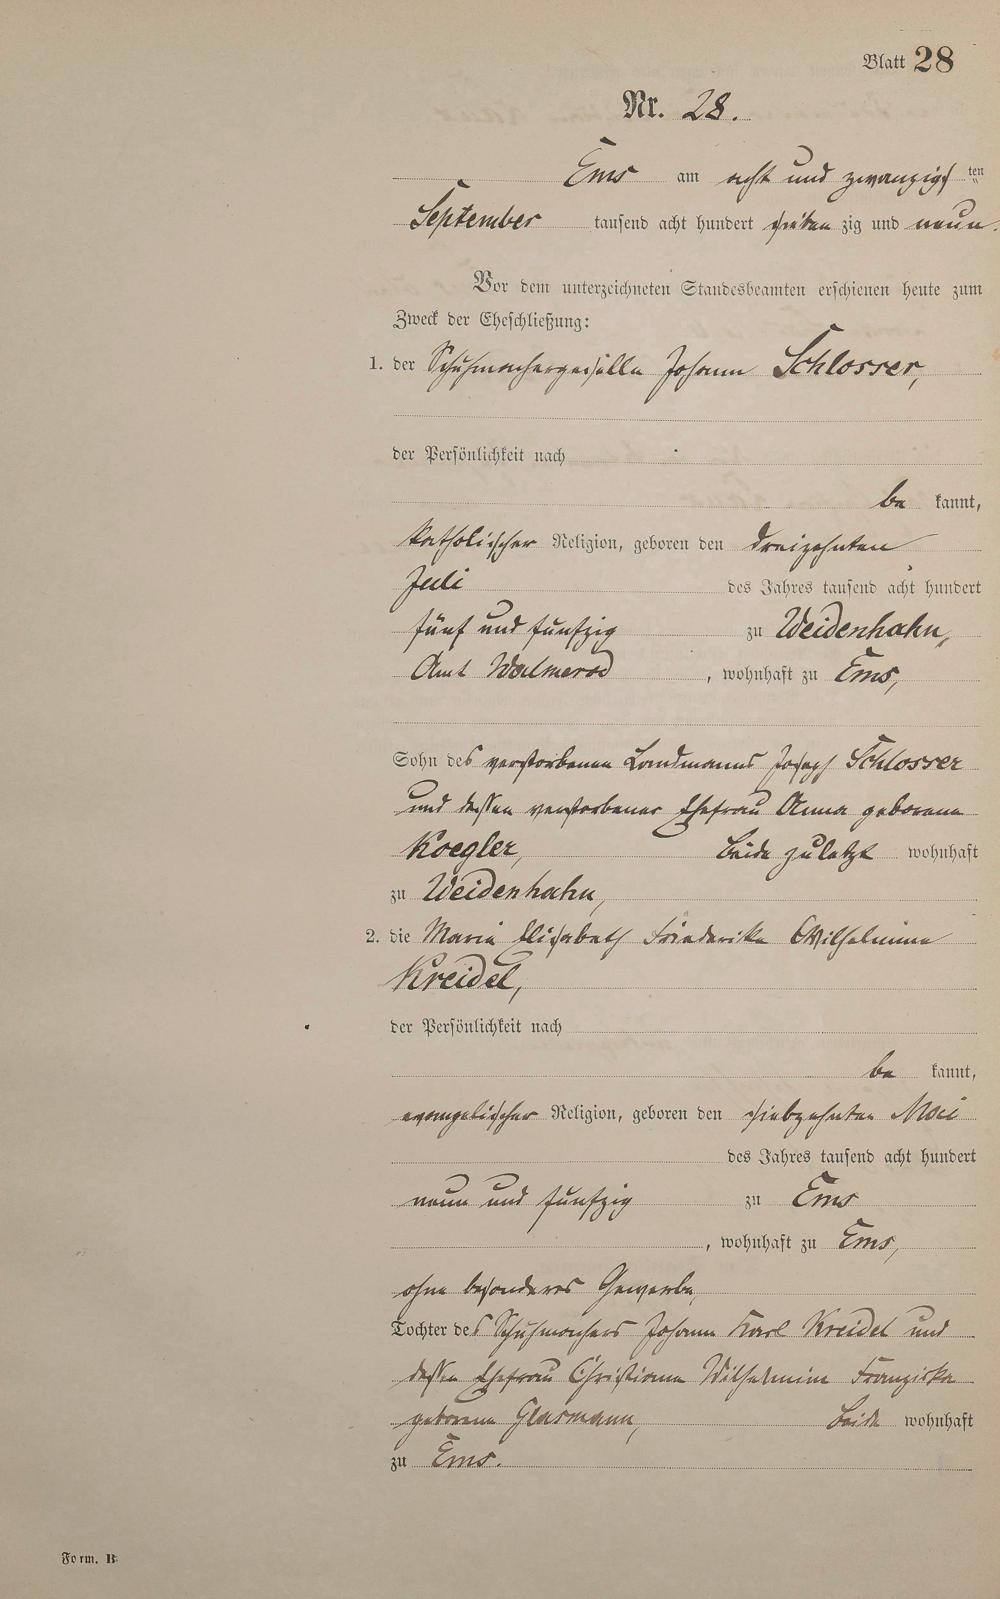 Blatt 28
Nr. 28.
Ems am acht und zwanzigsten
September tausend acht hundert sieben zig und neun.
Vor dem unterzeichneten Standesbeamten erschienen heute zum
Zweck der Eheschließung:
1. der Schuhmachergeselle Johann Schlosser,
der Persönlichkeit nach
be kannt,
katholischer Religion, geboren den dreizehnten
Juli des Jahres tausend acht hundert
fünf und funfzig zu Weidenhahn,
Amt Walmerod, wohnhaft zu Ems,
Sohn des verstorbenen Landmanns Joseph Schlosser
und dessen verstorbener Ehefrau Anna geborene
Koegler, beide zuletzt wohnhaft
zu Weidenhahn,
2. die Maria Elisabeth Friederike Wilhelmine
Kreidel,
der Persönlichkeit nach
be kannt,
evangelischer Religion, geboren den siebzehnten Mai
des Jahres tausend acht hundert
neun und funfzig zu Ems
, wohnhaft zu Ems,
ohne besonderes Gewerbe,
Tochter des Schuhmachers Johann Karl Kreidel und
dessen Ehefrau Christiane Wilhelmine Franziska
geborene Glasmann, beide wohnhaft
zu Ems.
Form. B.